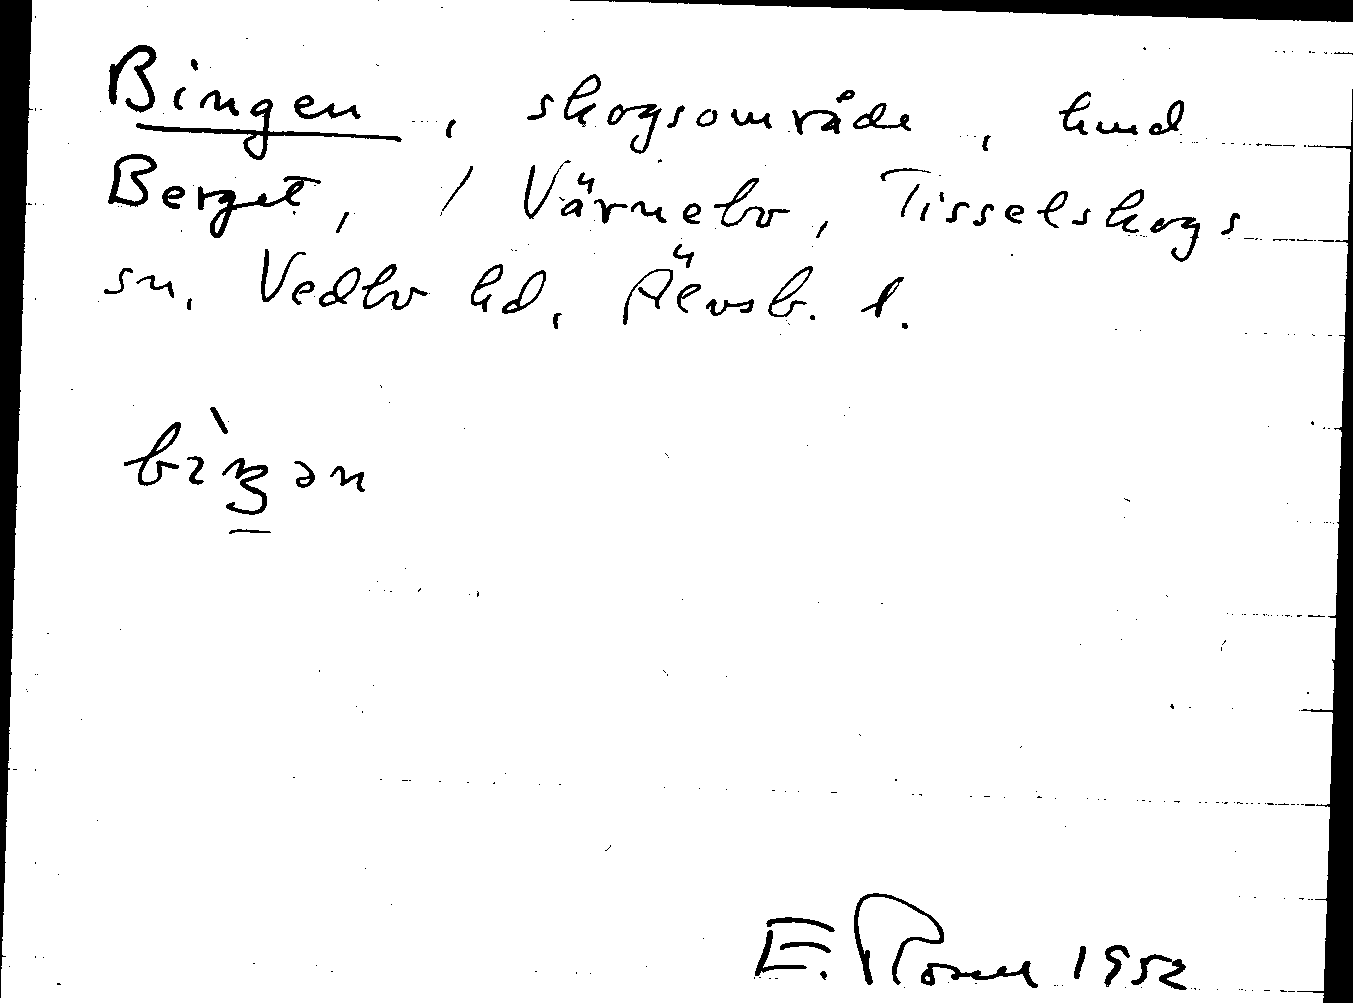 Bingen, skogsområde, hmd
Berget, 1 Värnebo, Tisselskogs
sn, Vedbo hd, Älvsb. l.
E. Rosell 1952